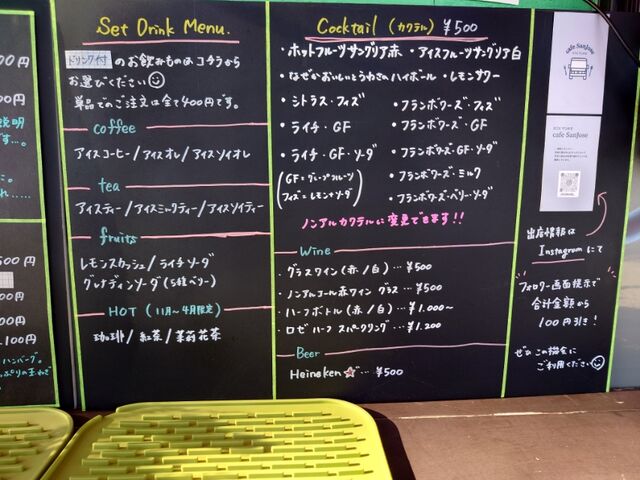 00円
00円
説明
です…。
に。
れ……
500円
00円
00円
50円
.100円
ハンバーグ。
Set Drink Menu.
ドリンク付 のお飲みものは コチラから
お選びください
単品でのご注文は全て400円です。
coffee
アイスコーヒー/アイスオレ/アイスソイオレ
tea
アイスティー/アイスミルクティー/アイスソイティー
fruits
レモンスカッシュ/ライチソーダ
グレナディンソーダ(5種ベリー)
HOT (11月〜4月限定)
珈琲/紅茶/茉莉花茶
Cocktail (カクテル) ¥500
・ホットフルーツサングリア赤 ・アイスフルーツサングリア白
・なぜかおいしいとうわさのハイボール ・レモンサワー
・シトラス・フィズ ・フランボワーズ・フィズ
・ライチ・GF ・フランボワーズ・GF
・ライチ・GF・ソーダ ・フランボワーズ・GF・ソーダ
(GF=グレープフルーツ ・フランボワーズ・ミルク
フィズ=レモン+ソーダ) ・フランボワーズ・ベリー・ソーダ
ノンアルカクテルに変更できます!!
Wine
・グラスワイン(赤/白)…¥500
・ノンアルコール赤ワイン グラス …¥500
・ハーフボトル(赤/白)…¥1.000〜
・ロゼ ハーフ スパークリング…¥1.200
Beer
Heineken …¥500
cafe SanJose
cafe SanJose
出店情報は
Instagramにて
フォロワー画面提示で
合計金額から
100円引き!
ぜひこの機会に
ご利用ください